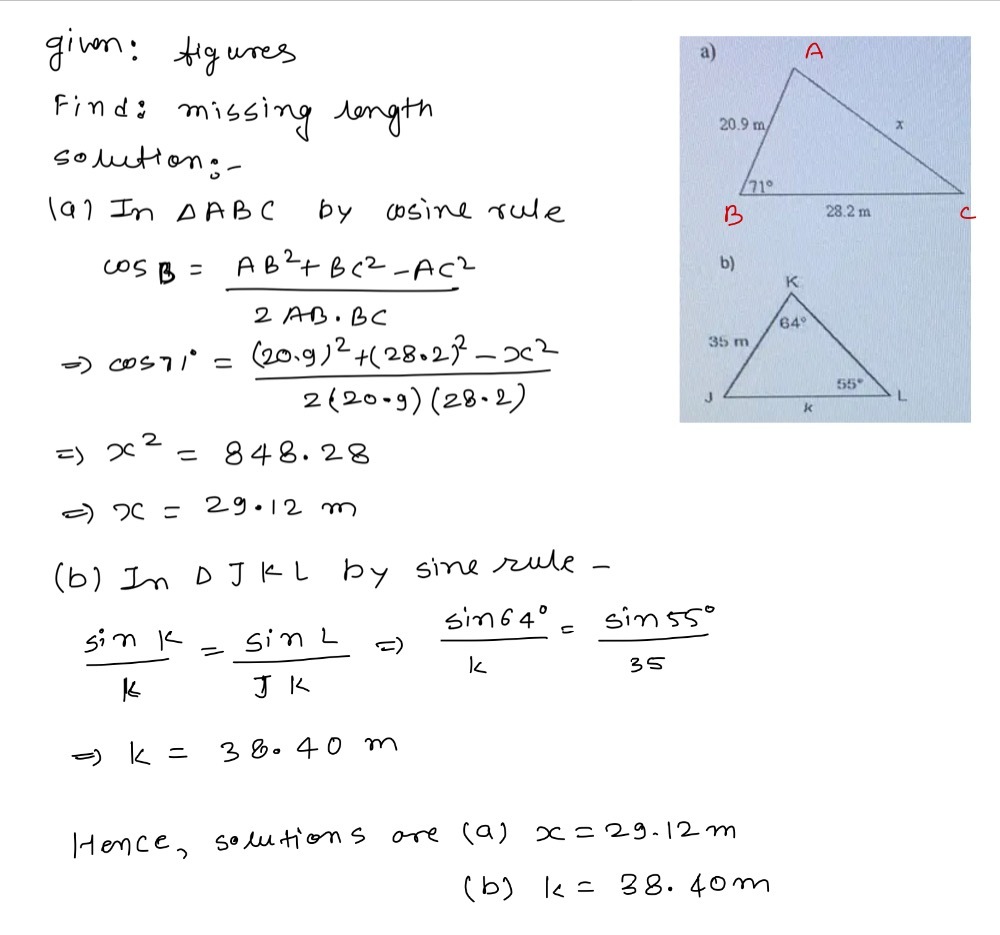 given: figures
Find: missing length
solution:-
(a) In ΔABC by cosine rule
cos B = AB²+BC²-AC² / 2 AB.BC
⇒ cos71° = (20.9)²+(28.2)²-x² / 2(20.9)(28.2)
⇒ x² = 848.28
⇒ x = 29.12 m
(b) In Δ JKL by sine rule -
sin K / k = sin L / JK ⇒ sin64° / k = sin55° / 35
⇒ k = 38.40 m
Hence, solutions are (a) x = 29.12m
(b) k = 38.40m
a)
A
20.9 m
x
71°
B
28.2 m
C
b)
K
64°
35 m
55°
J
L
k